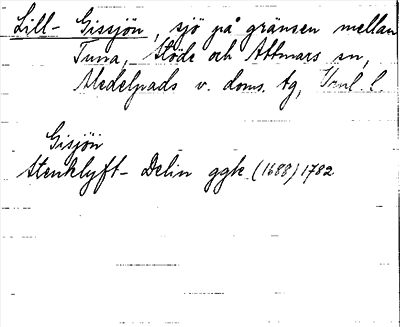 Lill-Gissjön, sjö på gränsen mellan
Tuna, Stöde och Attmars sn,
Medelpads v. doms. tg, Vnl. l.
Gisjön
Stenklyft- Delin ggk (1688) 1782